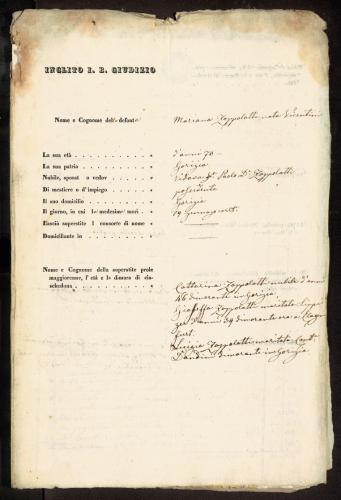 INCLITO I. R. GIUDIZIO
Nome e Cognome della defonta
Mariana Zoppolatti nata Vicentini
La sua età . . . . . . . . . . . . « d'anni 70 —
La sua patria . . . . . . . . . . . « Gorizia
Nubile, sposat o vedov . . . . . « Vedova Paolo Dr Zoppolatti
Di mestiere o d'impiego . . . . . « possidente
Il suo domicilio . . . . . . . . . . « Gorizia
Il giorno, in cui la medesima morì . « 19
Lascia superstite l consorte di nome «
Domiciliante in . . . . . . . . . . «
Nome e Cognome della superstite prole
maggiorenne, l'età e la dimora di cia-
scheduna . . . . . . . . . . . . . «
Catterina Zoppolatti nubile d'anni
46 dimorante in Gorizia,
Giuseffa Zoppolatti maritata
d'anni 39 dimorante
furt.
Luigia Zoppolatti maritata
dimorante in Gorizia.